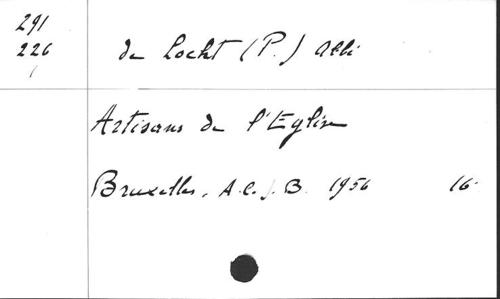 291
226
de Locht (P.) Abbé
Artisans de l'Eglise
Bruxelles, A.C.J.B. 1956 16°